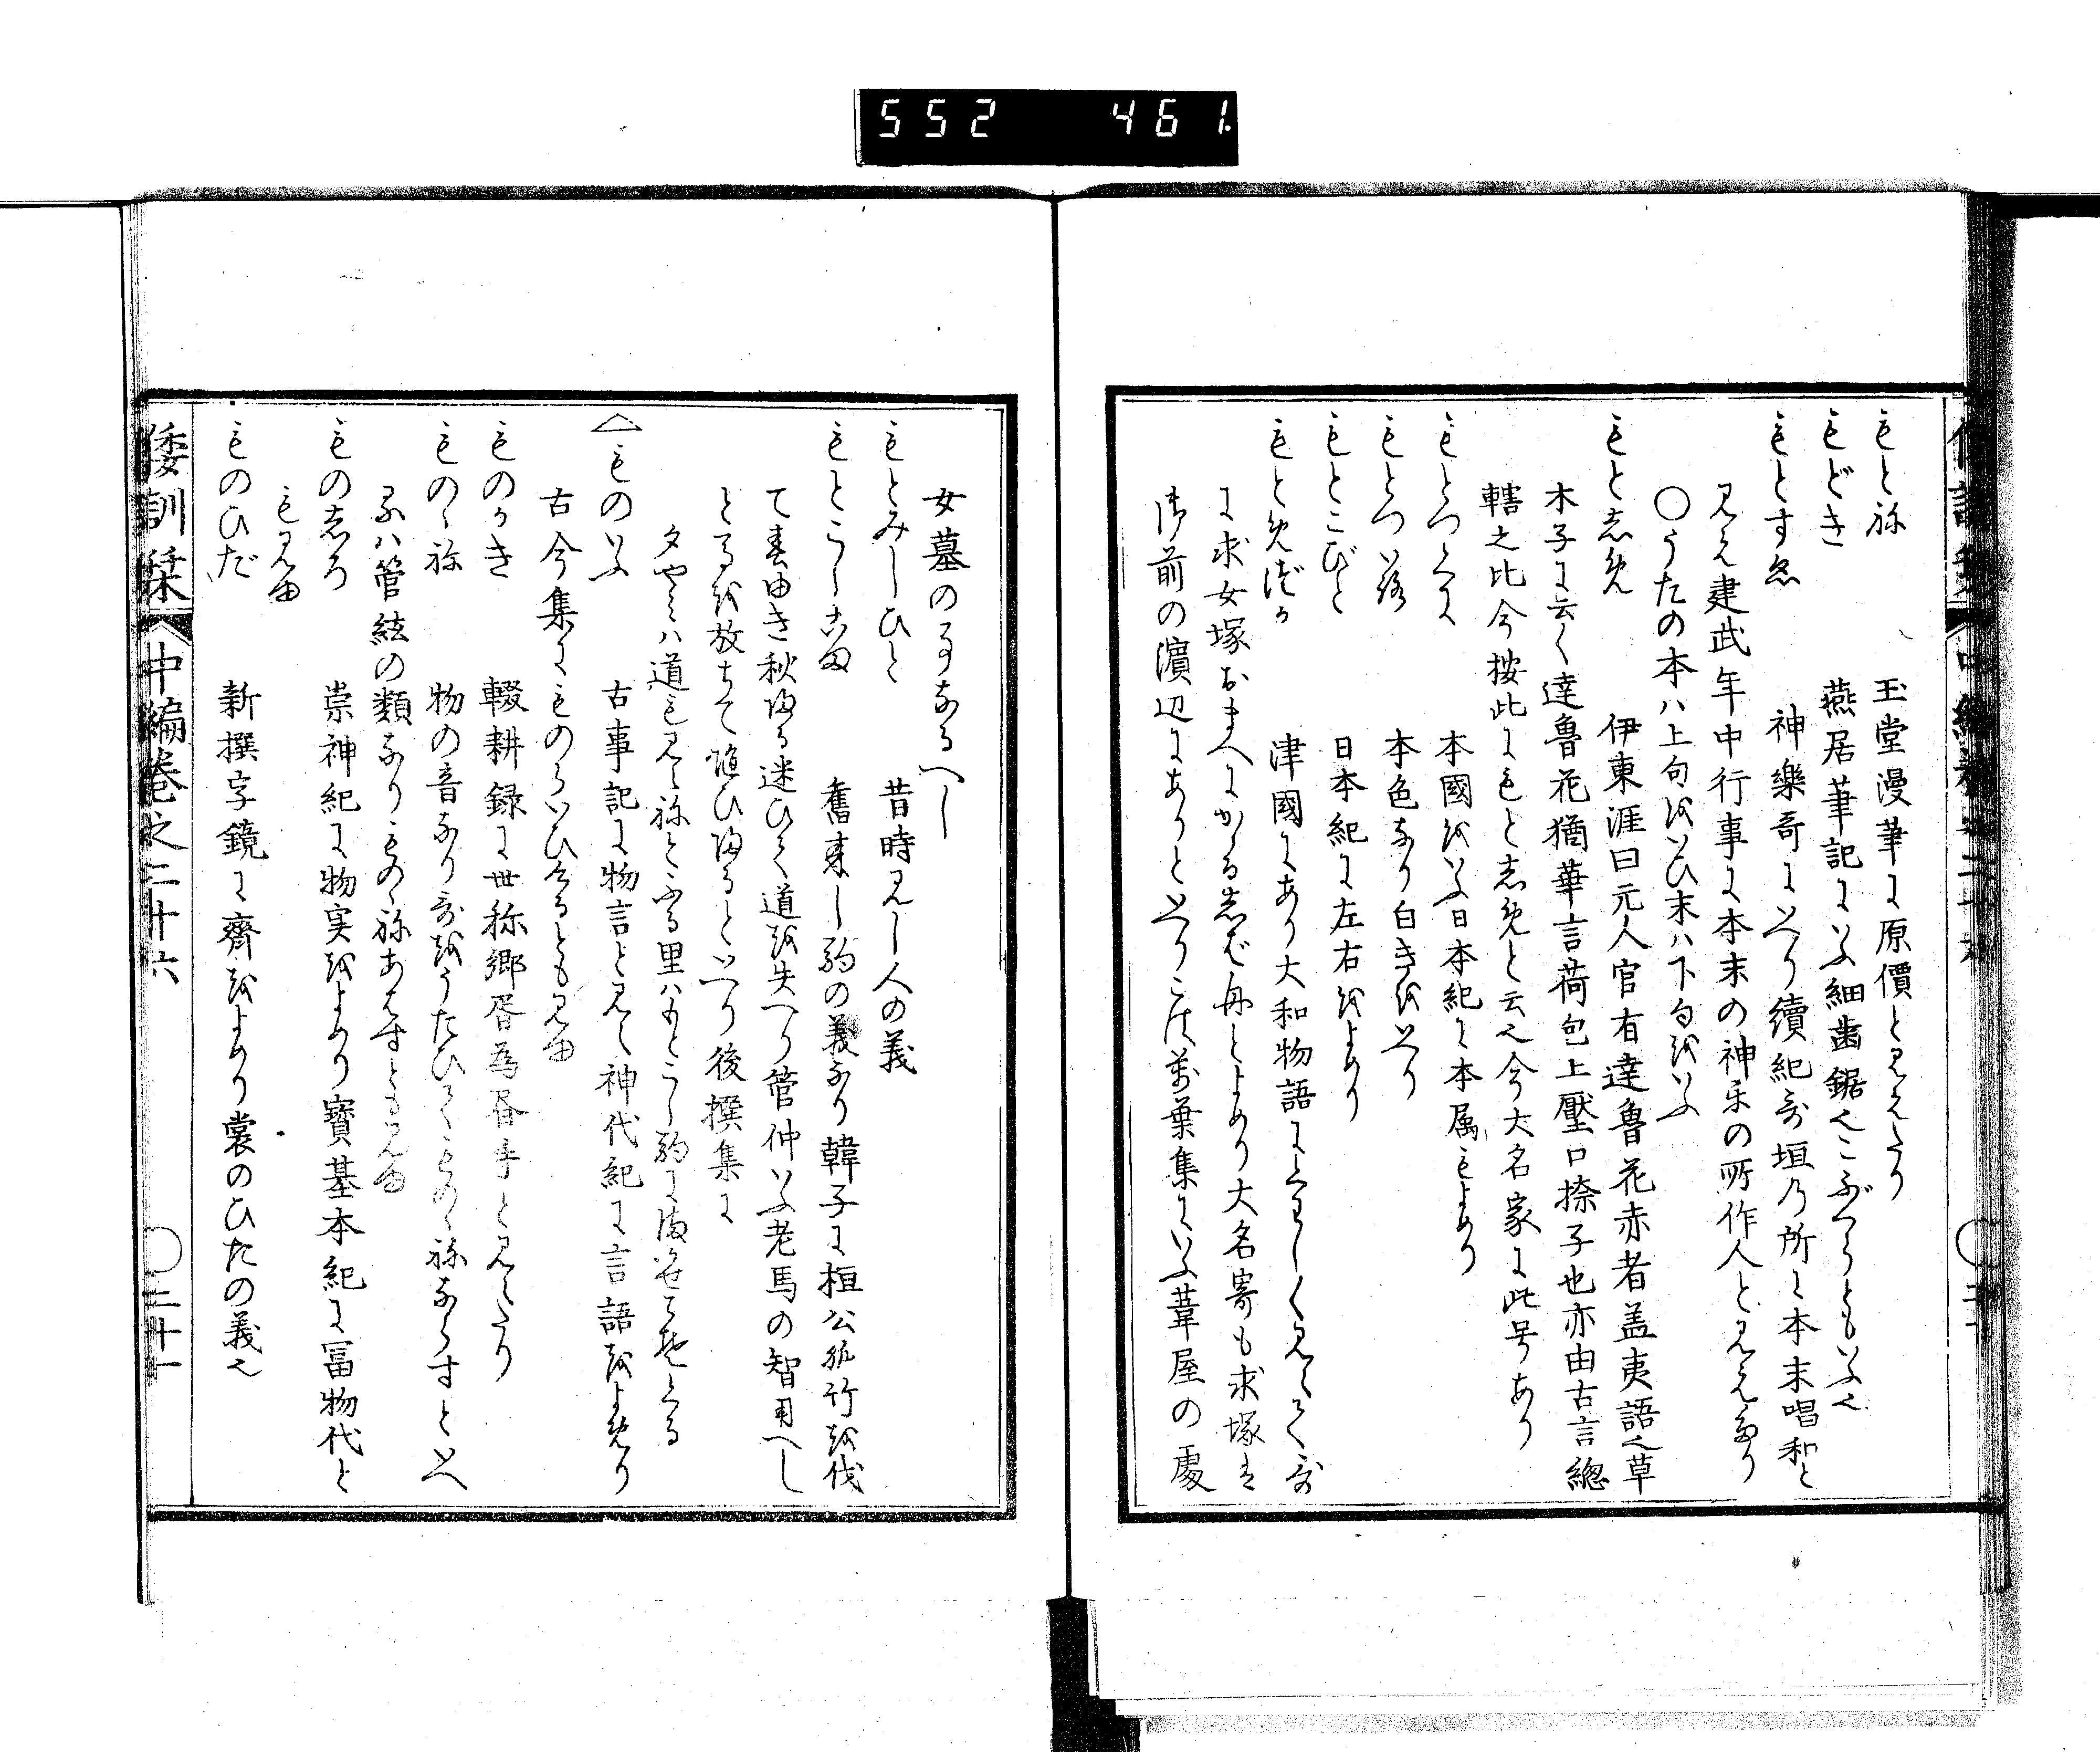 552 461
もと祢 玉堂漫筆に原價と見えたり
もどき 燕居筆記にいふ細歯鋸也こびつらともいふ也
もとすゑ 神樂哥にいへり續紀哥垣乃所に本末唱和と
見え建武年中行事に本末の神楽の所作人と見えたり
〇うたの本ハ上句をいひ末ハ下句をいふ
もと志め 伊東涯曰元人官有達魯花赤者盖夷語也草
木子に云く達魯花猶華言荷包上壓口捺子也亦由古言總
轄之比今按此にもと志めと云也今大名家に此号あり
もとつくに 本國をいふ日本紀に本属もよめり
もとついろ 本色なり白きをいへり
もとこびと 日本紀に左右をよめり
もとめづか 津國にあり大和物語にくはしく見えて哥
に求女塚おまへにかゝる志ば舟とよめり大名寄も求塚は
御前の濵辺にありといへりこは萬葉集にいふ葦屋の處
女墓の事なるへし
もとみしひと 昔時見し人の義
もとこしこま 舊来し駒の義なり韓子に桓公孤竹を伐
て春ゆき秋帰る迷ひて道を失へり管仲いふ老馬の智用へし
とて馬を放ちて随ひ帰るといへり後撰集に
夕やミハ道も見え祢とふる里ハもとこし駒にまかせてそくる
へものいふ 古事記に物言と見え神代紀に言語をよめり
古今集にものらいひけるとも見ゆ
ものかき 輟耕録に世称郷胥為昏手と見えたり
ものゝ祢 物の音なり哥をうたひてものゝ祢ならすといへ
るハ管絃の類なりものゝ祢あはすとも見ゆ
もの志ろ 崇神紀に物実をよめり寳基本紀に冨物代と
も見ゆ
ものひだ 新撰字鏡に齊をよめり裳のひたの義也
倭訓栞 中編巻之二十六 〇二十一